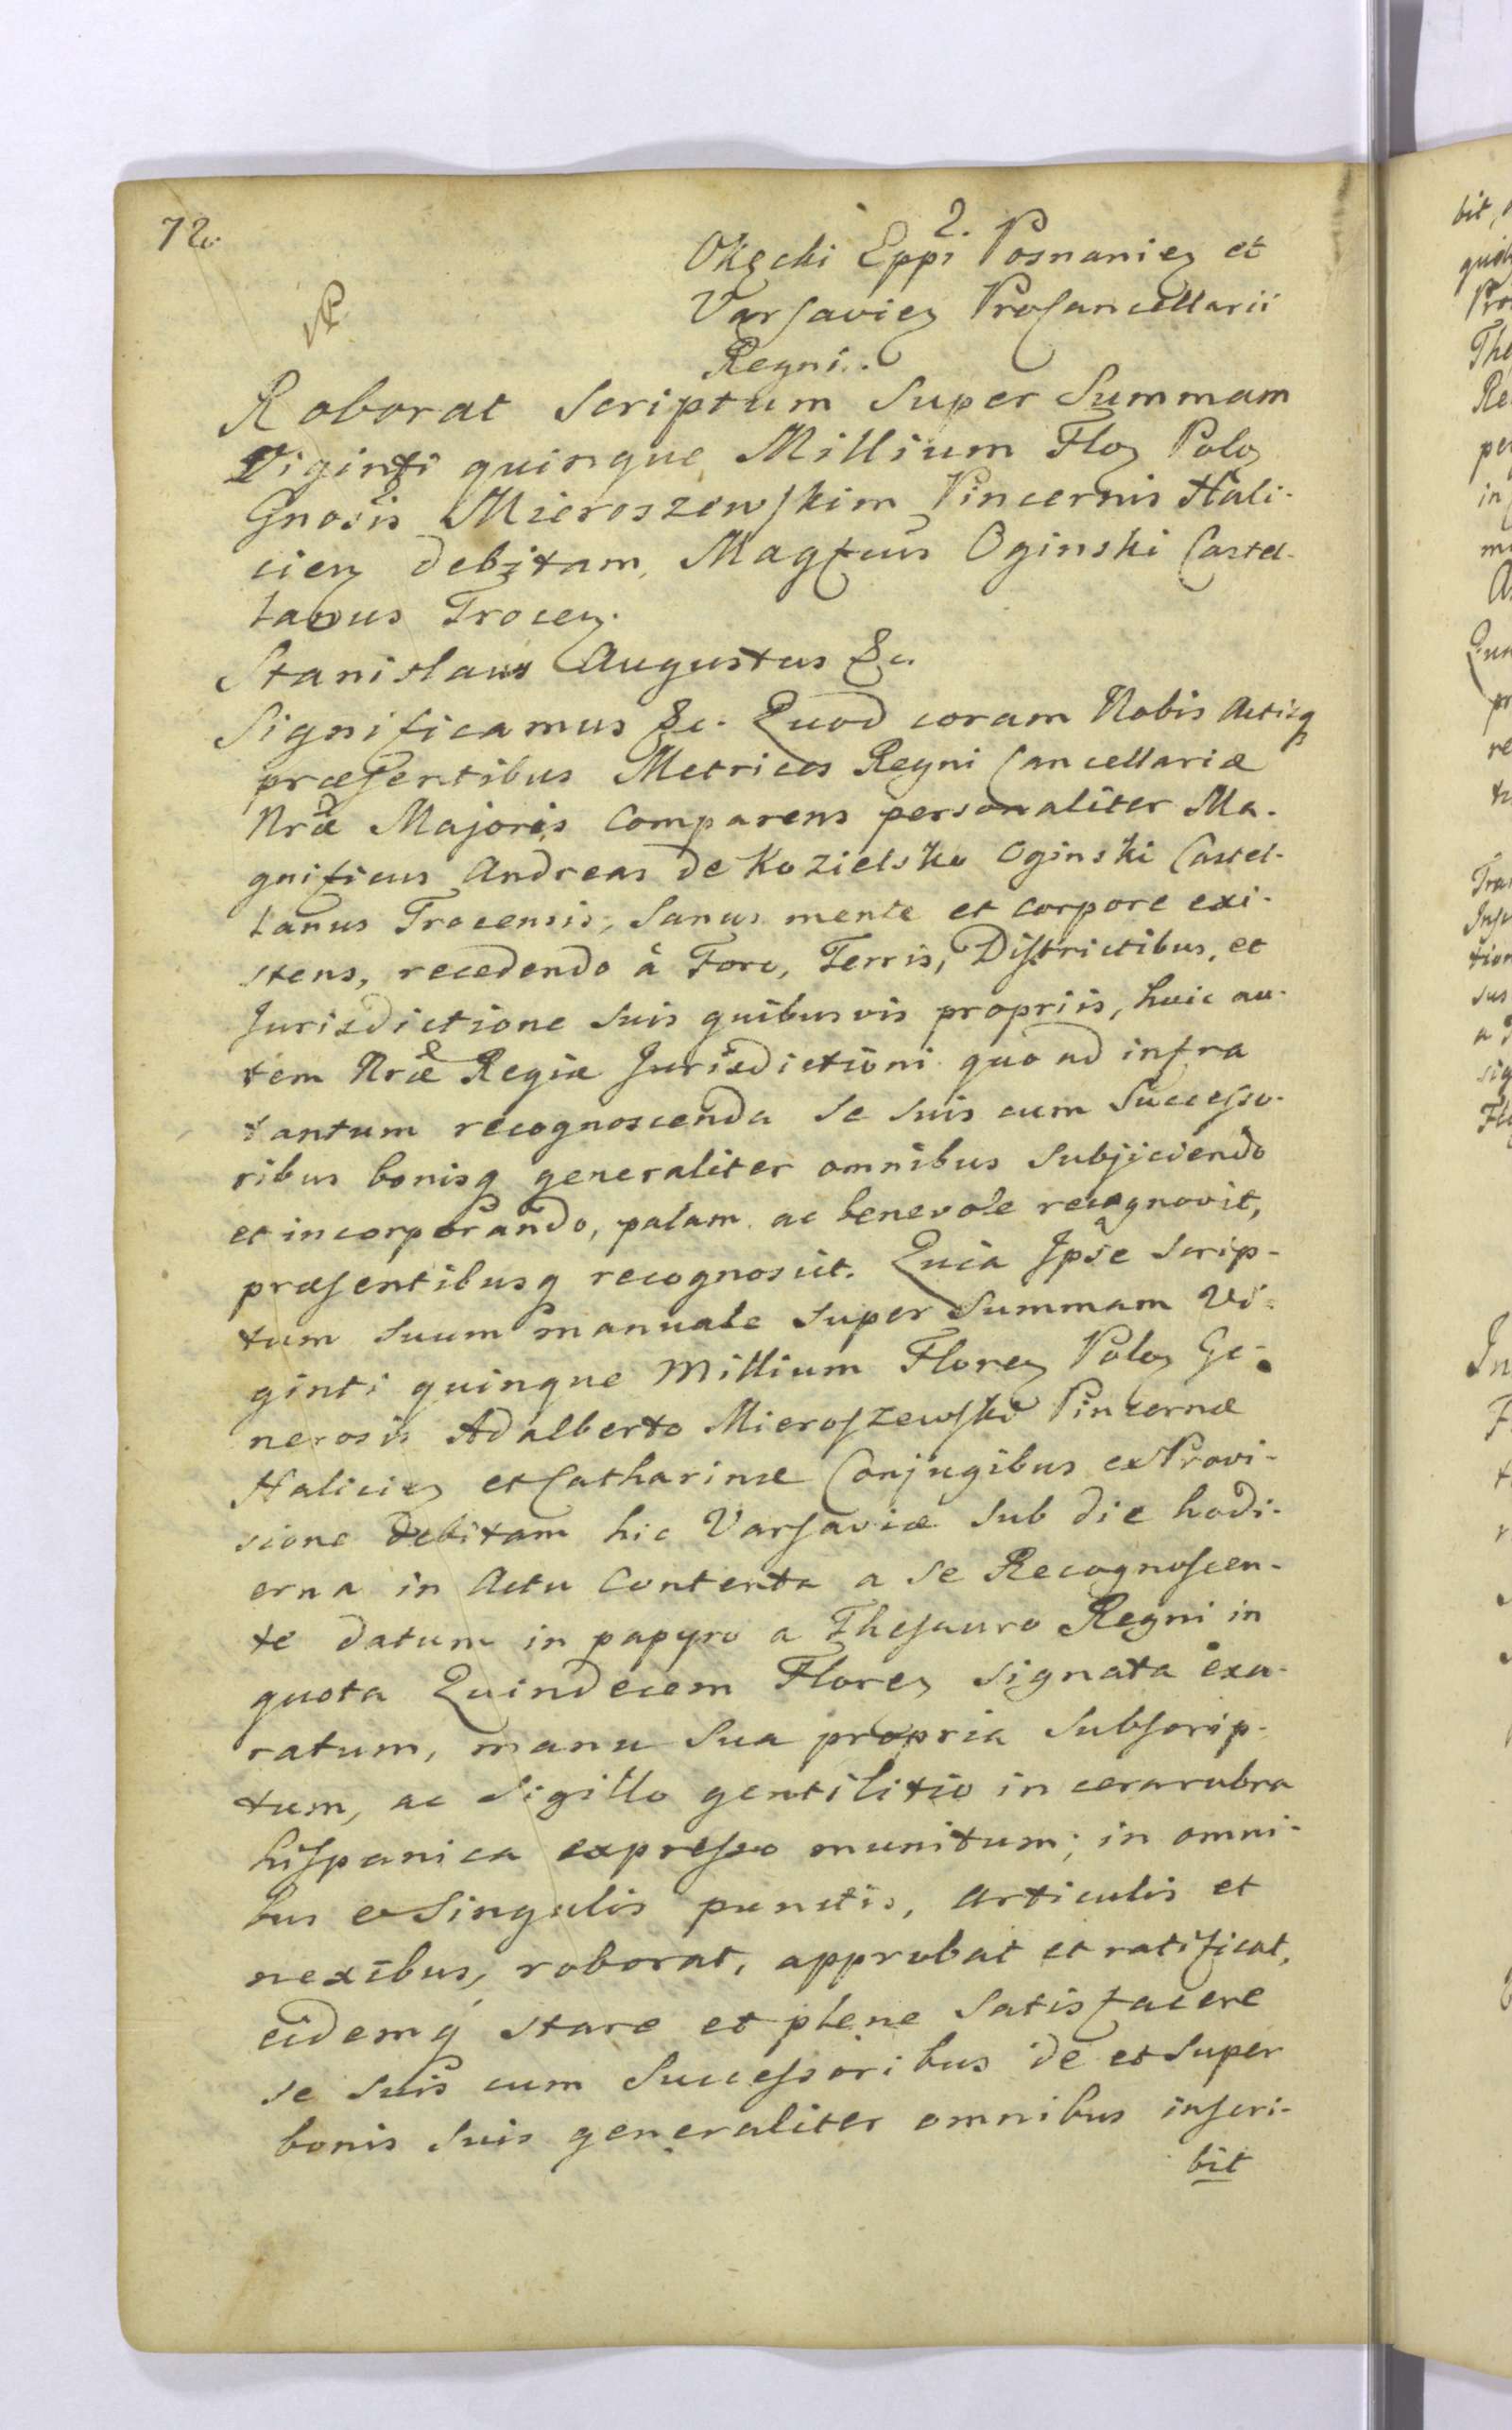 72.
2.
Okęcki Eppi Posnanieȝ et
Varsavieȝ Procancellarii
Regni.
Roborat Scriptum Super Summam
Viginti quinque Millium Floȝ Poloȝ
Gnosis Mieroszewskim Pincernis Hali-
cieȝ debitam, Magfcus Oginski Castel-
lanus Troceȝ.
Stanislaus Augustus &c.
Significamus &c. Quod coram Nobis Actisq
præsentibus Metrices Regni Cancellariæ
Nræ Majoris Comparens personaliter Ma-
gnificus Andreas de Kozielsko Oginski Castel-
lanus Trocensis, Sanus mente et corpore exi-
stens, recedendo à Foro, Terris, Districtibus, et
Jurisdictione Suis quibusvis propriis, huic au-
tem Nræ Regiæ Jurisdictioni quo ad infra
tantum recognoscenda Se Suis cum Successo-
ribus bonisq generaliter omnibus Subjiciendo
et incorporando, palam ac benevole recognovit,
præsentibusq recognoscit. Quia Ipse Scrip-
tum Suum manuale Super Summam Vi-
ginti quinque Millium Floreȝ Poloȝ Ge-
nerosis Adalberto Mieroszewski Pincernæ
Halicieȝ et Catharinæ Conjugibus ex Provi-
sione debitam hic Varsaviæ Sub die hodi-
erna in Actu Contenta a Se Recognoscen-
te datum in papyro a Thesauro Regni in
quota Quindecem Floreȝ Signata exa-
ratum, manu Sua propria Subscrip-
tum, ac Sigillo gentilitio in cera rubra
hispanica expresso munitum; in omni-
bus et Singulis punctis, articulis et
nexibus, roborat, approbat et ratificat,
eidemq stare et plene Satisfacere
se Suis cum Successoribus de et Super
bonis Suis generaliter omnibus inscri-
bit